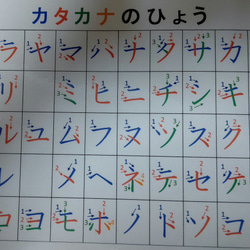 カタカナのひょう
ラ ヤ マ ハ ナ タ サ カ
リ ミ ヒ ニ チ シ キ
ル ユ ム フ ヌ ツ ス ク
レ メ ヘ ネ テ セ ケ
ロ ヨ モ ホ ノ ト ソ コ